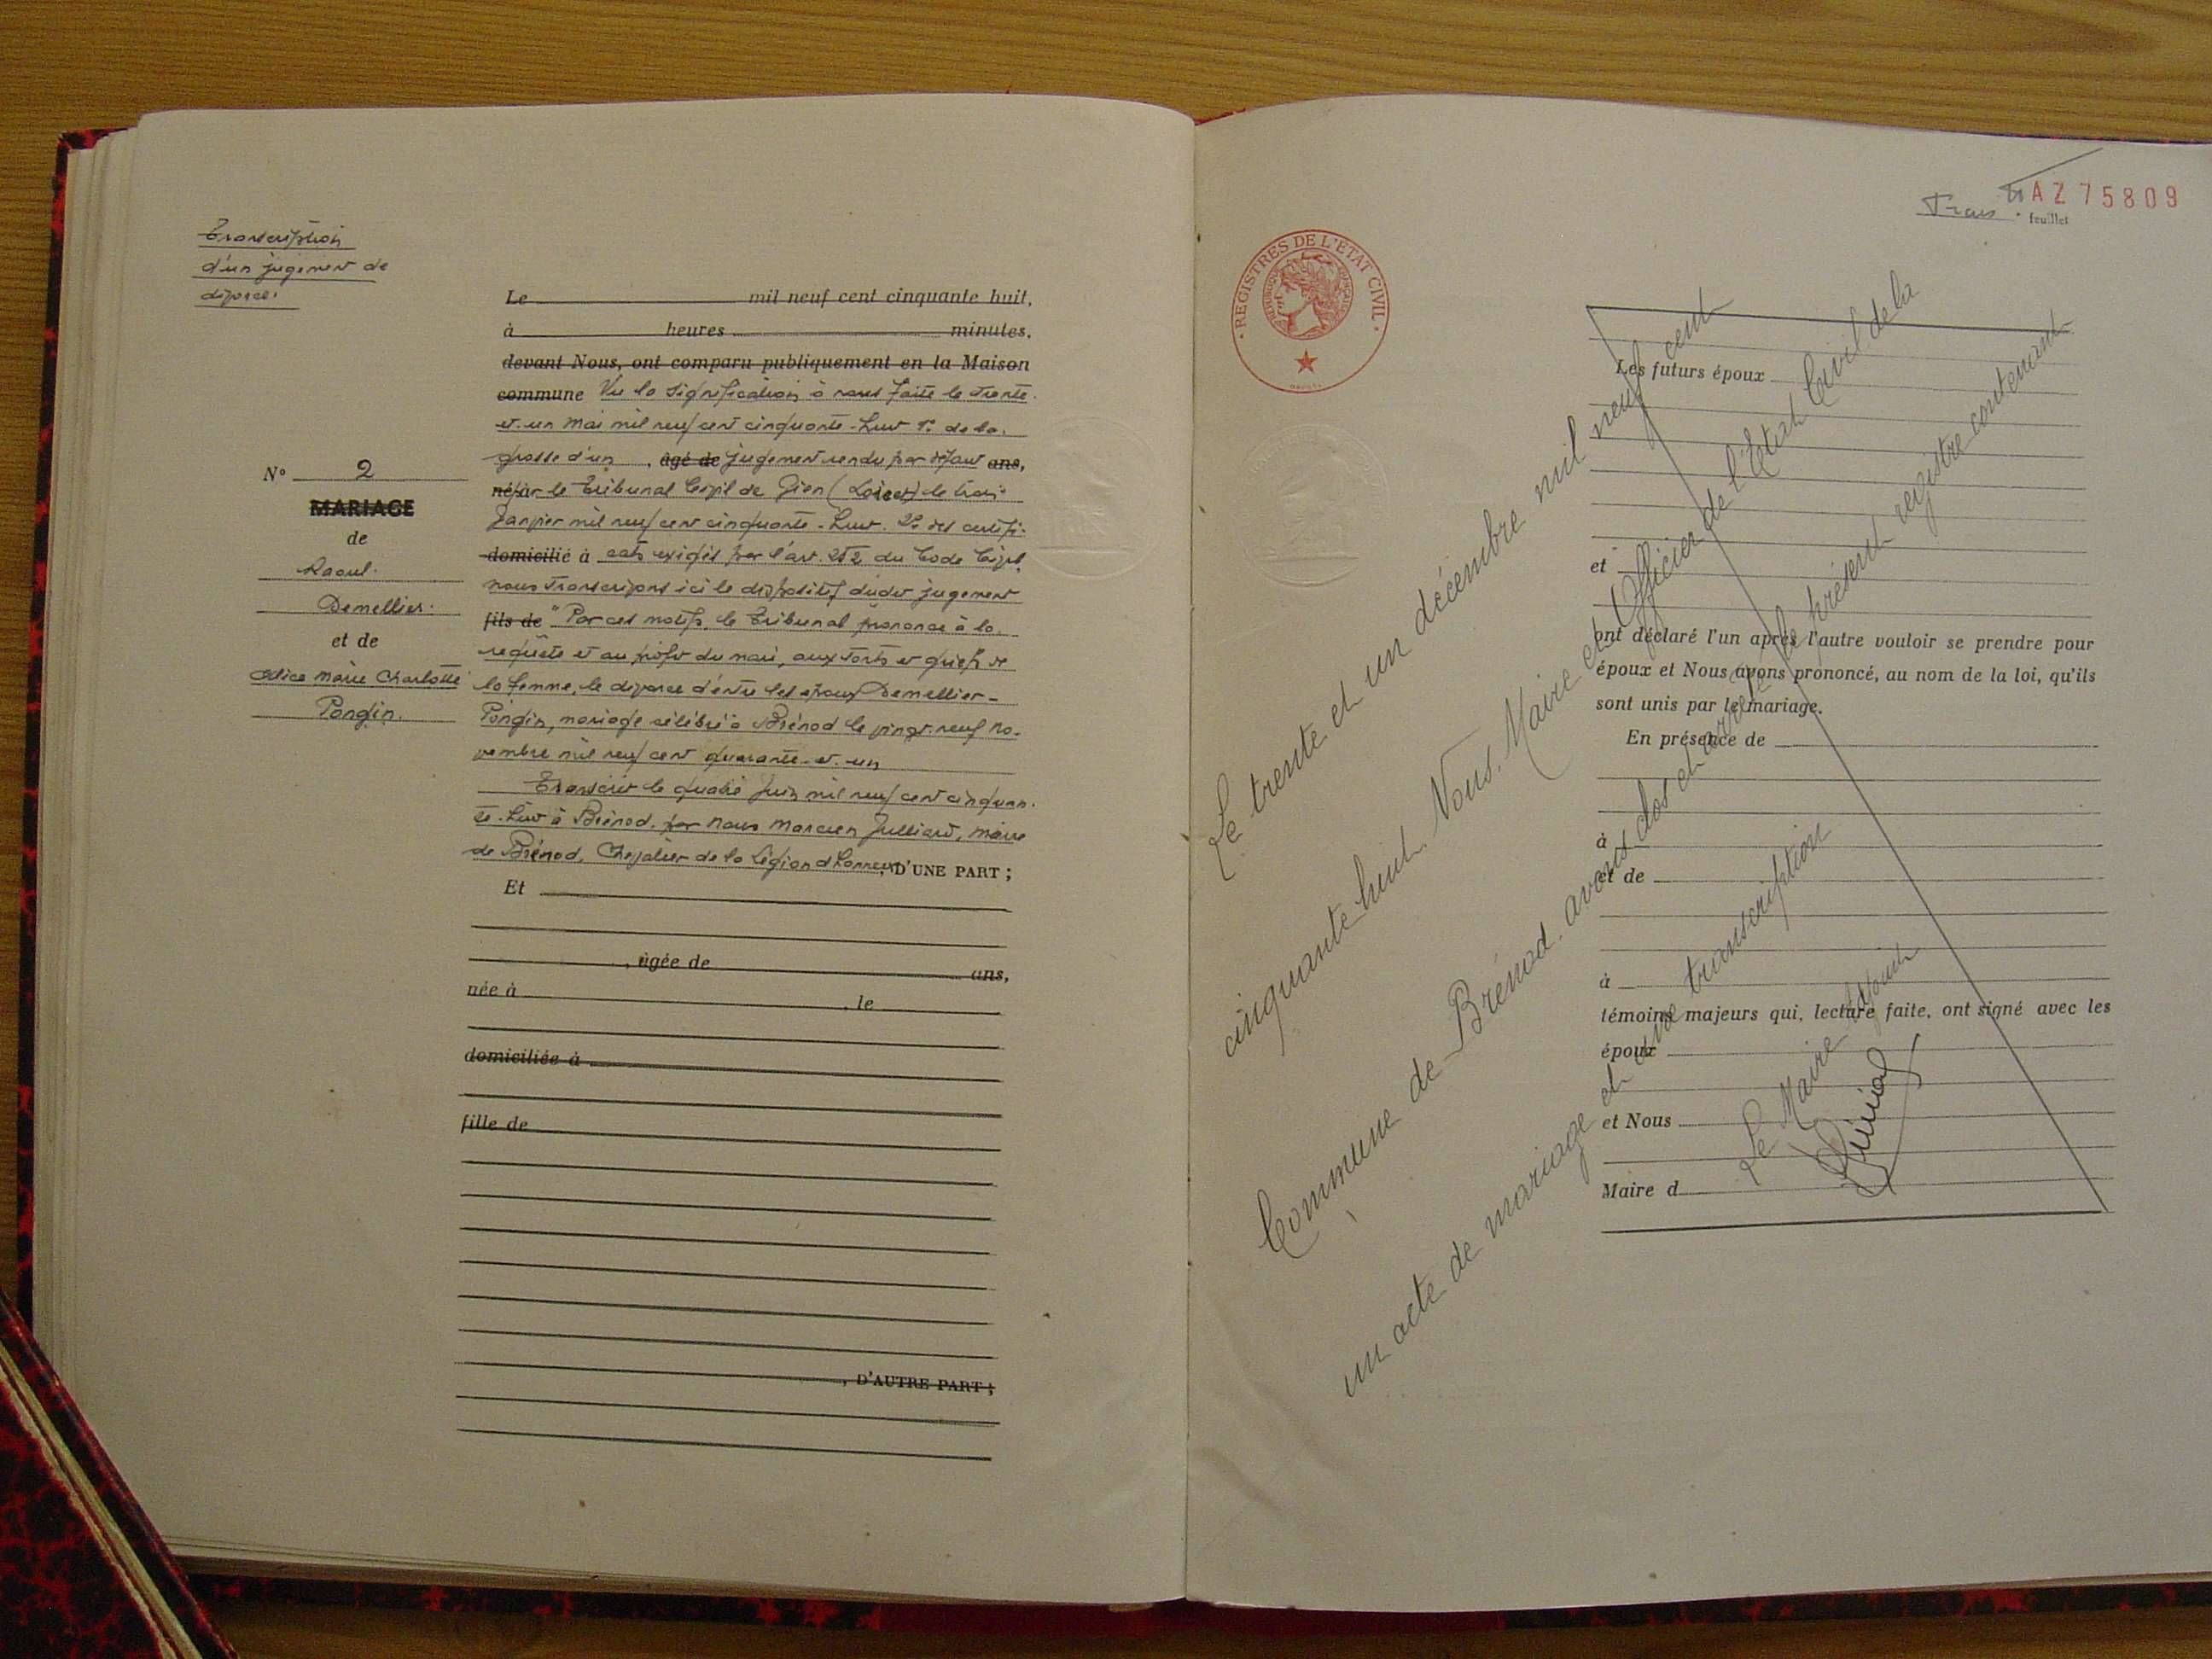 Transcription
d'un jugement de
divorce.
N° 2
MARIAGE
de
Raoul
Demellier
et de
Alice Marie Charlotte
Pongin.
Le mil neuf cent cinquante huit,
à heures minutes,
devant Nous, ont comparu publiquement en la Maison
commune Vu la signification à nous faite le trente
et un Mai mil neuf cent cinquante-huit 1° de la
grosse d'un , âgé de jugement rendu par défaut ans,
né par le Tribunal Civil de Gien (Loiret) le trois
Janvier mil neuf cent cinquante-huit. 2° des certifi-
domicilié à cats exigés par l'art. 252 du Code Civil,
nous transcrivons ici le dispositif dudit jugement
fils de "Par ces motifs, le Tribunal prononce à la
requête et au profit du mari, aux torts et griefs de
la femme, le divorce d'entre les époux Demellier-
Pongin, mariage célébré à Brénod le vingt-neuf no-
vembre mil neuf cent quarante-et-un
Transcrit le quatre Juin mil neuf cent cinquan-
te-huit à Brénod, par nous Marcien Julliard, maire
de Brénod, Chevalier de la Légion d'honneur, D'UNE PART ;
Et
, âgée de ans,
née à , le
domiciliée à
fille de
, D'AUTRE PART ;
REGISTRES DE L'ÉTAT CIVIL
RÉPUBLIQUE FRANÇAISE
Trois feuillet
AZ 75809
Les futurs époux
et
ont déclaré l'un après l'autre vouloir se prendre pour
époux et Nous avons prononcé, au nom de la loi, qu'ils
sont unis par le mariage.
En présence de
à
et de
à
témoins majeurs qui, lecture faite, ont signé avec les
époux
et Nous
Maire d
Le trente et un décembre mil neuf cent
cinquante huit, Nous, Maire et Officier de l'Etat Civil de la
Commune de Brénod, avons clos et arrêté le présent registre contenant
un acte de mariage et une transcription
Le Maire Adjoint